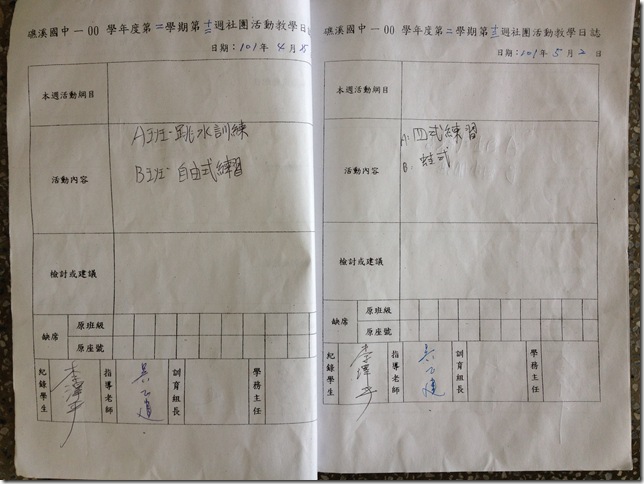 礁溪國中一00 學年度第二學期第十二週社團活動教學日誌
日期:101年 4 月 25
本週活動綱目
活動內容
A班:跳水訓練
B班:自由式練習
檢討或建議
缺席
原班級
原座號
紀錄學生
李澤
指導老師
訓育組長
學務主任
礁溪國中一00 學年度第二學期第十三週社團活動教學日誌
日期:101年 5 月 2 日
本週活動綱目
活動內容
A:四式練習
B:蛙式
檢討或建議
缺席
原班級
原座號
紀錄學生
李澤
指導老師
訓育組長
學務主任